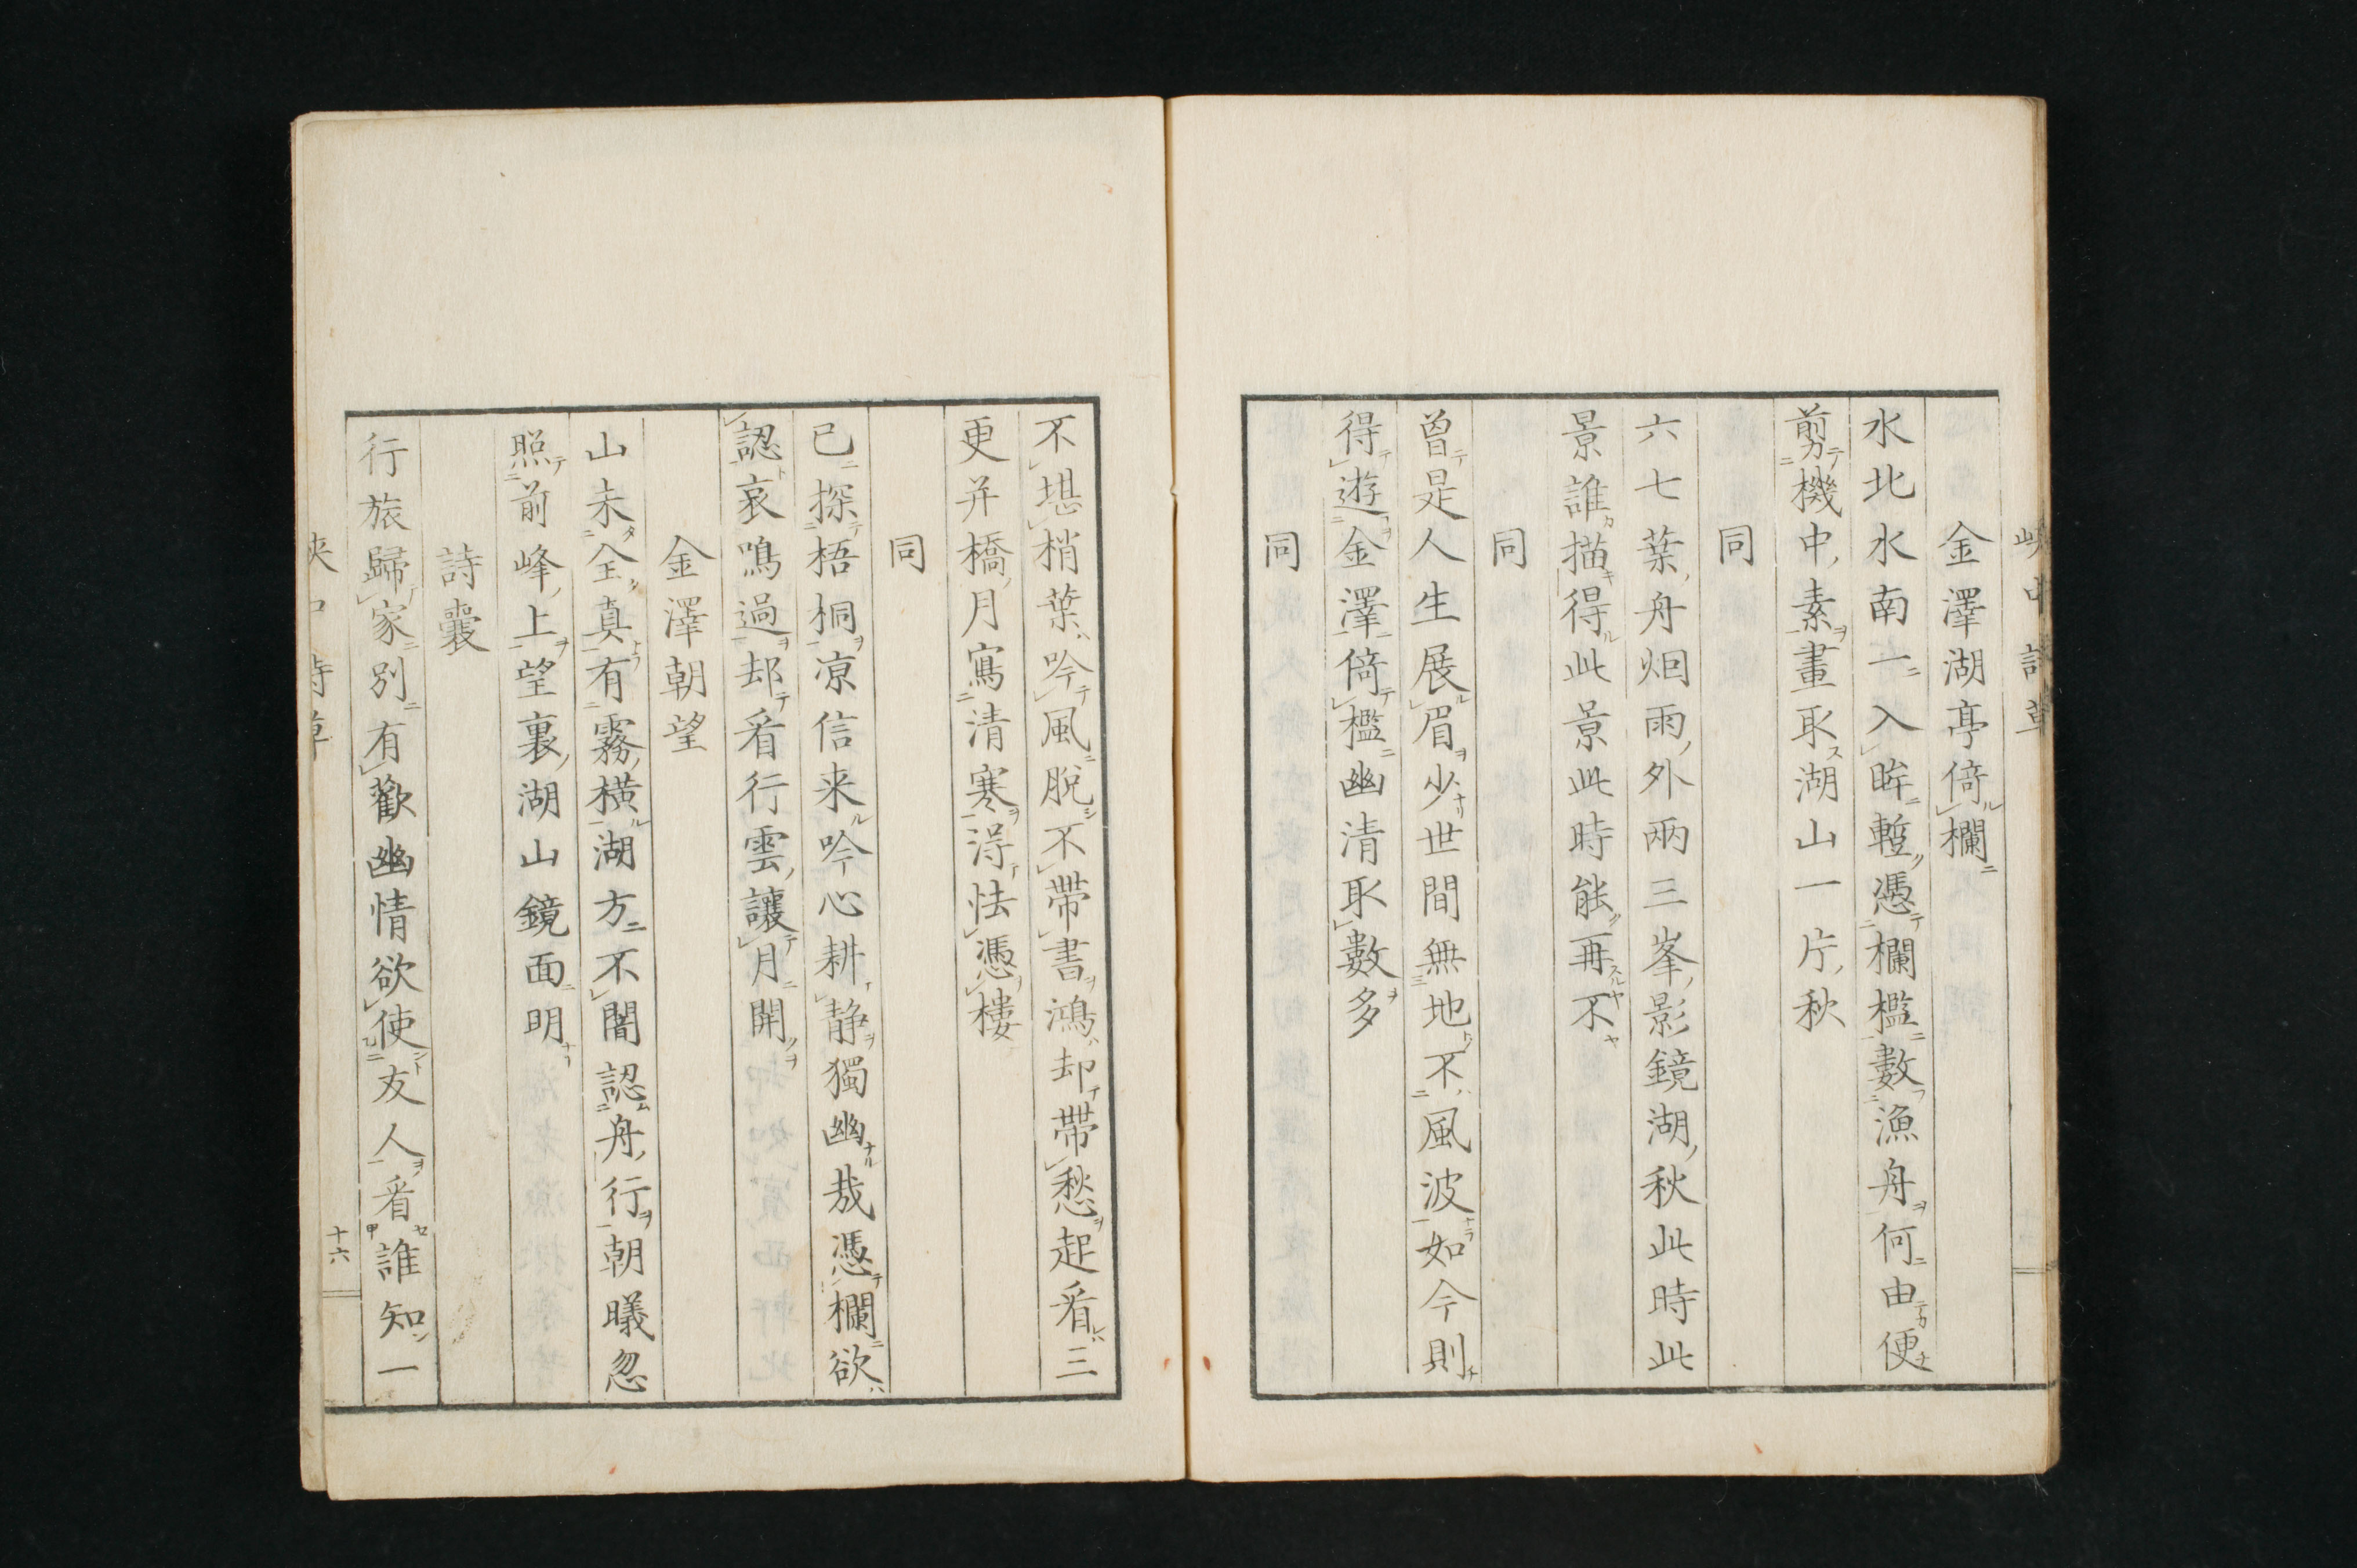 金澤湖亭倚欄
水北水南一入眸暫憑欄檻數漁舟何由便
剪機中素畫取湖山一片秋
同
六七葉舟烟雨外兩三峯影鏡湖秋此時此
景誰描得此景此時能再不
同
曾是人生展眉少世間無地不風波如今則
得遊金澤倚檻幽清取數多
同
不堪梢葉吟風脫不帶書鴻却帶愁起看三
更并橋月寫清寒淂怯憑樓
同
已探梧桐凉信来吟心耕静獨幽哉憑欄欲
認哀鳴過却看行雲讓月開
金澤朝望
山未全真有霧橫湖方不闇認舟行朝曦忽
照前峰上望裏湖山鏡面明
詩囊
行旅歸家別有歡幽情欲使友人看誰知一
十六